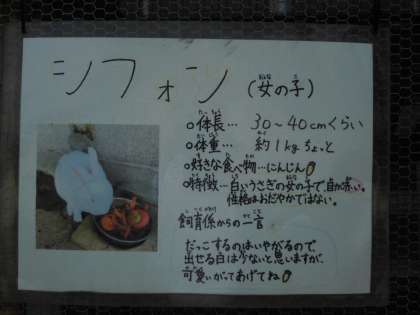 シフォン (女の子)
○体長…30～40cmくらい
○体重… 約1kgちょっと
○好きな食べ物…にんじん
○特徴…白いうさぎの女の子で、目が赤い。
性格はおだやかではない。
飼育係からの一言
だっこするのはいやがるので、
出せる日は少ないと思いますが、
可愛いがってあげてね